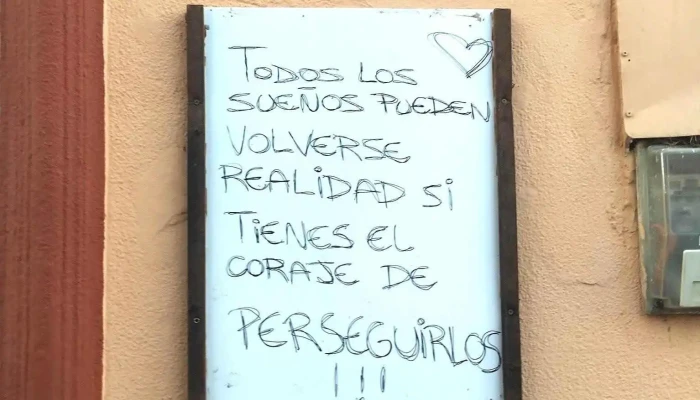 TODOS LOS
SUEÑOS PUEDEN
VOLVERSE
REALIDAD SI
TIENES EL
CORAJE DE
PERSEGUIRLOS
!!!